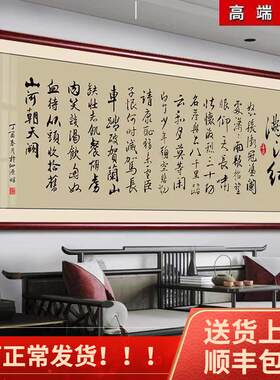 高端
满江红
怒发冲冠凭阑
处潇潇雨歇抬望
眼仰天长啸
壮怀激烈三十功
名尘与土八千里路
云和月莫等闲
白了少年头空悲切
靖康耻犹未雪臣
子恨何时灭驾长
车踏破贺兰山
缺壮志饥餐胡虏
肉笑谈渴饮匈奴
血待从头收拾旧
山河朝天阙
正常发货!
送货上
顺丰包